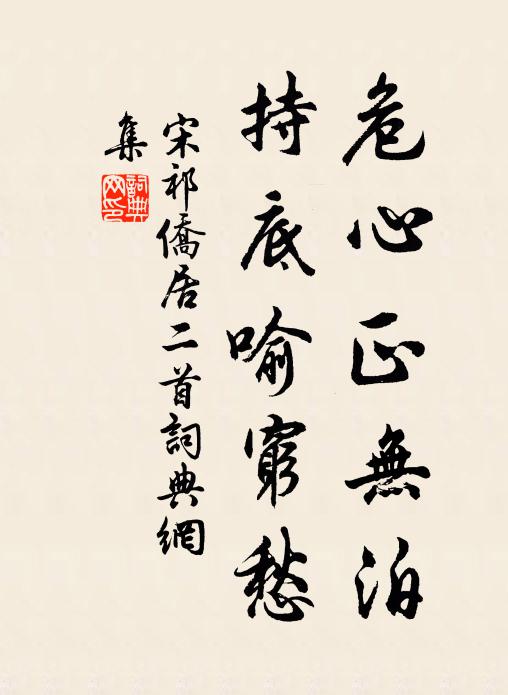 危心正無泊
持底喻窮愁
宋祁僑居二首詞典網
集
詞典網印